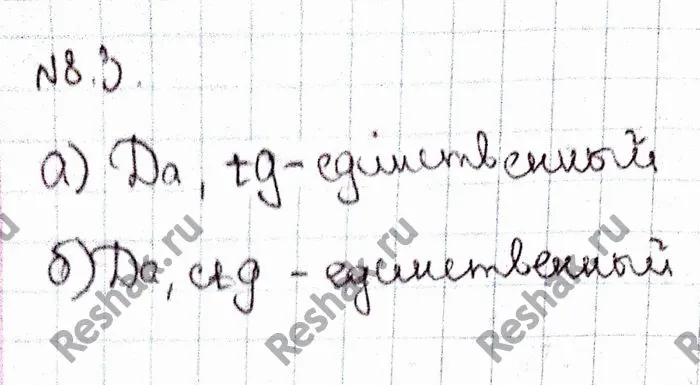 N8.3.
а) Да, tg - единственный
б) Да, ctg - единственный
Reshak.ru
Reshak.ru
Reshak.ru
Reshak.ru